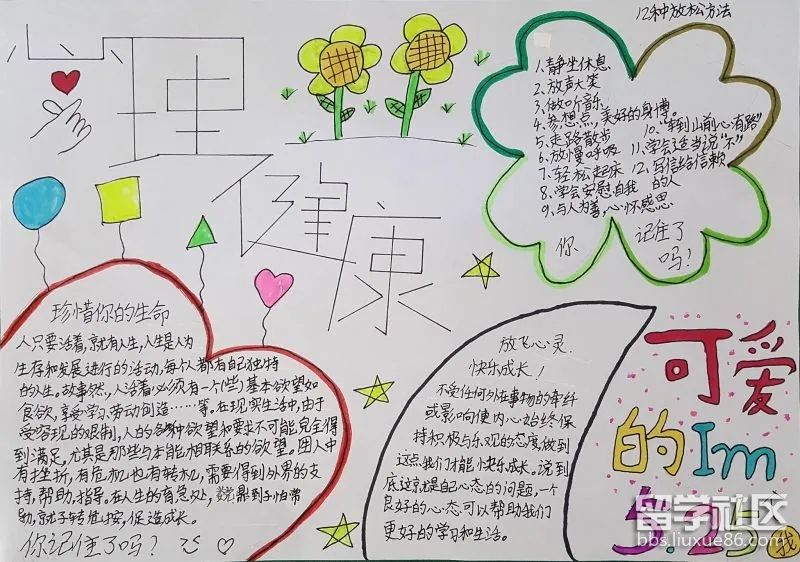 心理
健康
12种放松方法
1、静坐休息
2、放声大笑
3、做听音乐
4、参想点,美好的身博。
5、走路散步
6、放慢呼吸
7、轻松起床
8、学会安慰自我
9、与人为善,心怀感恩
10、“车到山前心有路”
11、学会适当说“不”
12、写信给信赖
的人
你
记住了
吗?
珍惜你的生命
人只要活着,就有人生,人生是人为
生存和发展进行的活动,每个人都有自己独特
的人生。故事然,人活着必须有一个(些)基本欲望如
食欲,享受学习,劳动创造……等。在现实生活中,由于
受客现的艰制,人的各种欲望和要求不可能完全得
到满足,尤其是那些与本能相联系的欲望。因人中
有挫折,有危机也有转机,需要得到外界的支
持,帮助,指导。在人生的育急处,
助,就
促造成长。
你记住了吗?
放飞心灵
快乐成长!
不受任何外在事物的牵纤
或影响使内心始终保
持积极与乐观的态度,做到
这点我们才能快乐成长。说到
底这就是自己心态的问题,一个
良好的心态可以帮助我们
更好的学习和生活。
可爱
的Im
5.25
我
留学社区
bbs.liuxue86.com